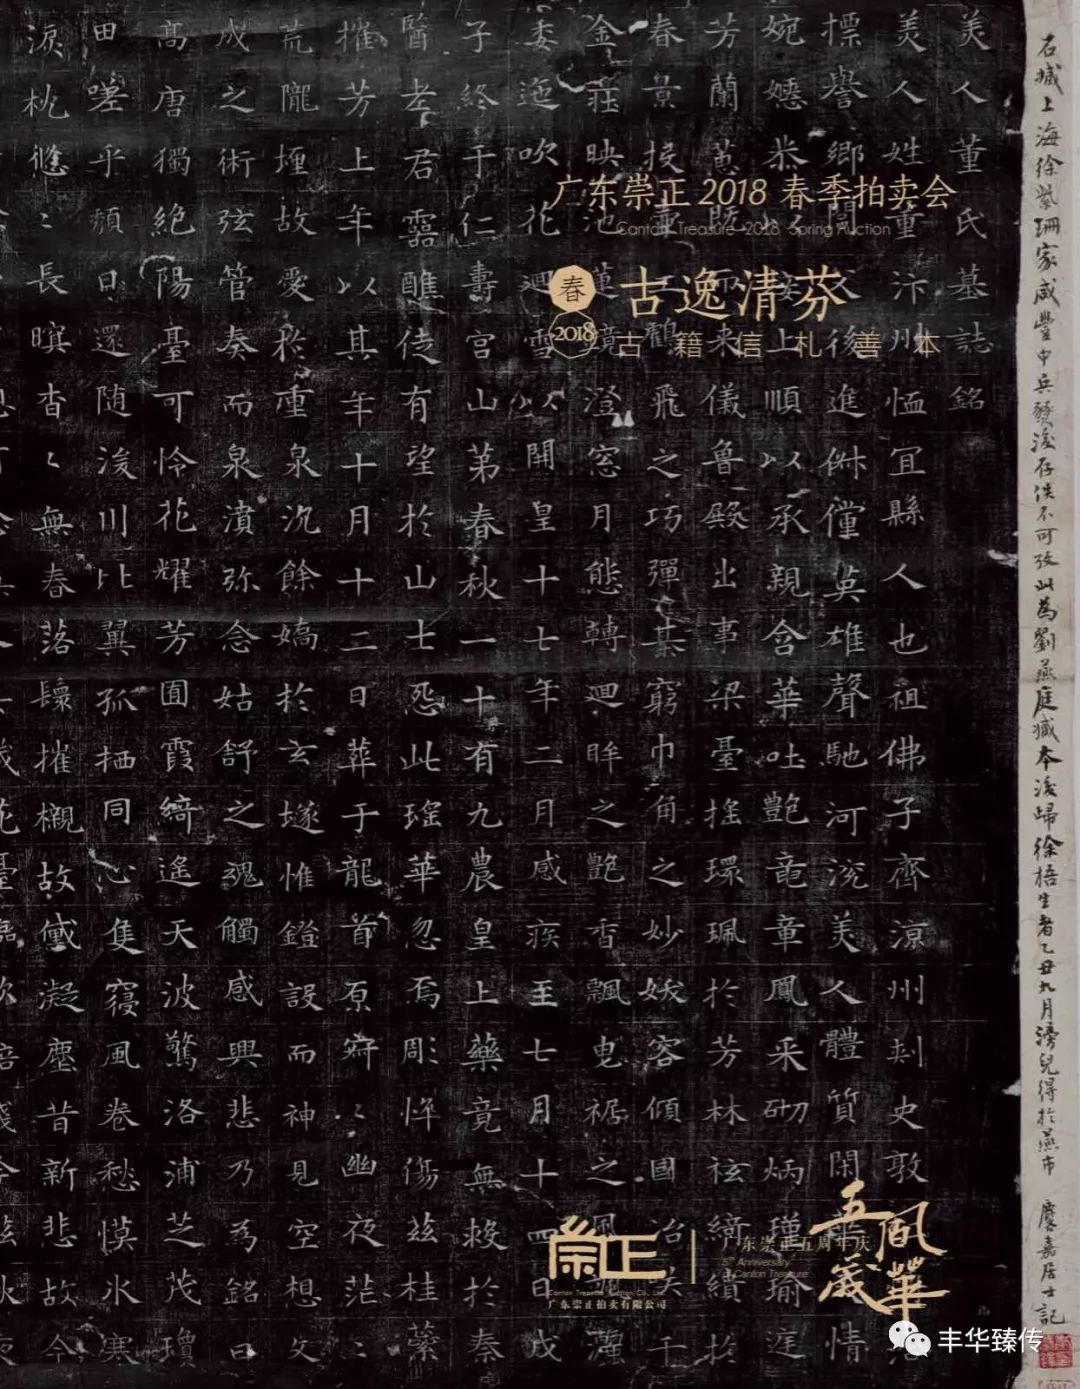 石臧上海徐紫珊家咸豐中兵燹後存佚不可攷此為劉燕庭臧本後歸徐梧生者乙丑九月滂兒得於燕市 慶嘉居士記
美人董氏墓誌銘
美人姓董汴州恤宜縣人也祖佛子齊涼州刺史敦
摽譽鄉閭父後進俶儻英雄聲馳河沇美人體質閑情
婉嫕恭以接上順以承親含華吐艷竜章鳳采砌炳瑾瑜庭
芳蘭蕙既而來儀魯殿出事梁臺搖環珮於芳林袨綺繢於
春景投壺工鶴飛之巧彈棊窮巾角之妙妖容傾國冶笑千
金莊映池蓮鏡澄窓月態轉迴眸之艷香飄曳裾之風颯灑
委迤吹花迴雪以開皇十七年二月感疾至七月十四日戊
子終于仁壽宮山第春秋一十有九農皇上藥竟無救於秦
醫老君靈醮徒有望於山士怨此瑤華忽焉彫悴傷茲桂蘂
摧芳上年以其年十月十二日葬于龍首原寂〻幽夜茫〻
荒隴埋故愛於重泉沉餘嬌於玄隧惟鐙設而神見空想文
成之術弦管奏而泉濆弥念姑舒之魂觸感興悲乃為銘曰
高唐獨絕陽臺可怜花耀芳囿霞綺遙天波驚洛浦芝茂瓊
田嗟乎頹日還随湲川比翼孤栖同心隻寢風卷愁慔冰寒
淚枕悠〻長暝杳〻無春落鬟摧櫬故黛凝塵昔新悲故今
广东崇正 2018 春季拍卖会
Canton Treasure 2018 Spring Auction
春
2018
古逸清芬
古籍信札善本
崇正
广东崇正拍卖有限公司
广东崇正五周年庆
5th Anniversary
of Canton Treasure
五歲
風華
丰华臻传